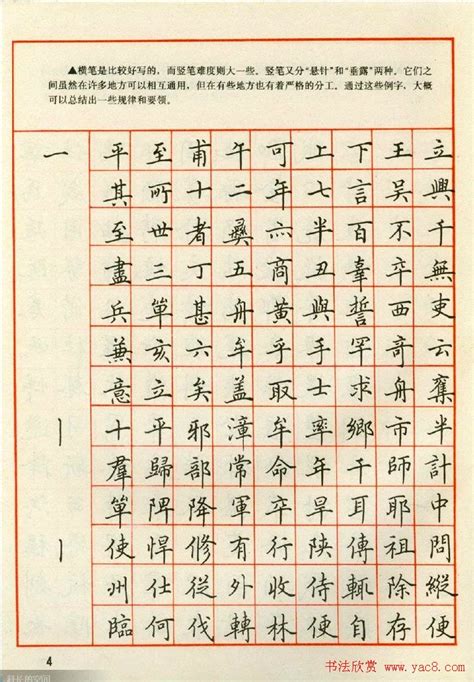 ▲横笔是比较好写的，而竖笔难度则大一些。竖笔又分“悬针”和“垂露”两种，它们之
间虽然在许多地方可以相互通用，但在有些地方也有着严格的分工。通过这些例字，大概
可以总结出一些规律和要领。
一 平 至 甫 午 可 上 下 王 立
其 所 十 二 年 七 言 吴 興
至 世 者 彝 六 半 百 不 千
盡 三 丁 五 商 丑 辜 卒 無
兵 單 甚 舟 黄 與 誓 西 吏
兼 亥 六 牟 乎 手 罕 奇 云
意 立 矣 盖 取 士 求 舟 奪
丨 十 平 邪 漳 牟 率 鄉 市 半
羣 歸 部 常 命 年 千 師 計
丨 單 陴 降 軍 卒 旱 耳 耶 中
使 悍 修 有 行 陝 傳 祖 問
州 仕 從 外 收 侍 輒 除 縱
臨 何 伐 轉 林 便 自 存 便
4
书法欣赏 www.yac8.com